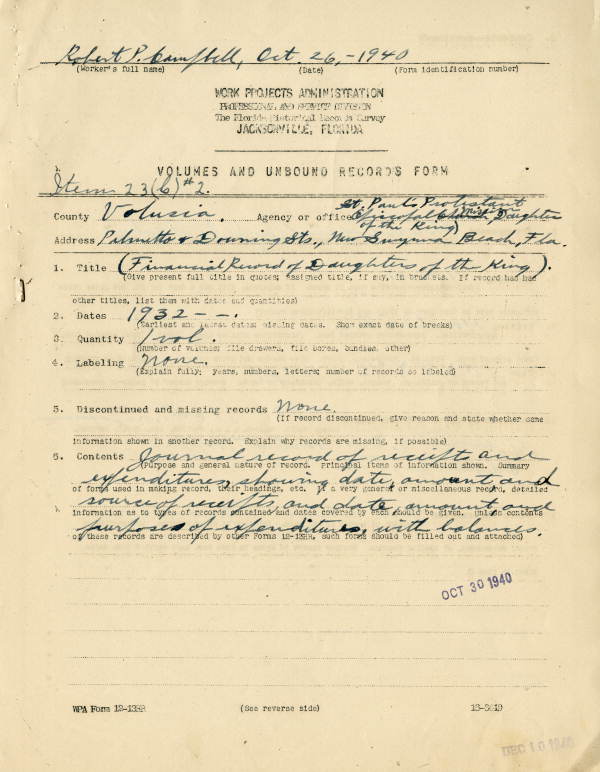 Robert P. Campbell, Oct. 26, - 1940
(Worker's full name) (Date) (Form identification number)
WORK PROJECTS ADMINISTRATION
PROFESSIONAL AND SERVICE DIVISION
The Florida Historical Records Survey
JACKSONVILLE, FLORIDA
VOLUMES AND UNBOUND RECORDS FORM
Item 23(b) #2.
St. Paul's Protestant
County Volusia. Agency or office Episcopal Mission Daughter
of the King)
Address Palmetto & Downing Sts., New Smyrna Beach, Fla.
1. Title (Financial Record of Daughters of the King).
(Give present full title in quotes; assigned title, if any, in brackets. If record has had
other titles, list them with dates and quantities)
2. Dates 1932 - -.
(Earliest and latest dates; missing dates. Show exact date of breaks)
3. Quantity 1 vol.
(Number of volumes; file drawers, file boxes, bundles, other)
4. Labeling None.
(Explain fully; years, numbers, letters; number of records so labeled)
5. Discontinued and missing records None.
(If record discontinued, give reason and state whether same
information shown in another record. Explain why records are missing, if possible)
6. Contents Journal record of receipts and
(Purpose and general nature of record. Principal items of information shown. Summary
expenditures, showing date, amount and
of forms used in making record, their headings, etc. If a very general or miscellaneous record, detailed
source of receipts, and date, amount, and
information as to types of records contained and dates covered by each should be given. Unless contents
purposes of expenditures, with balances.
of these records are described by other Forms 12-13HR, such forms should be filled out and attached)
OCT 30 1940
WPA Form 12-13HR (See reverse side) 13-5619
DEC 10 1940